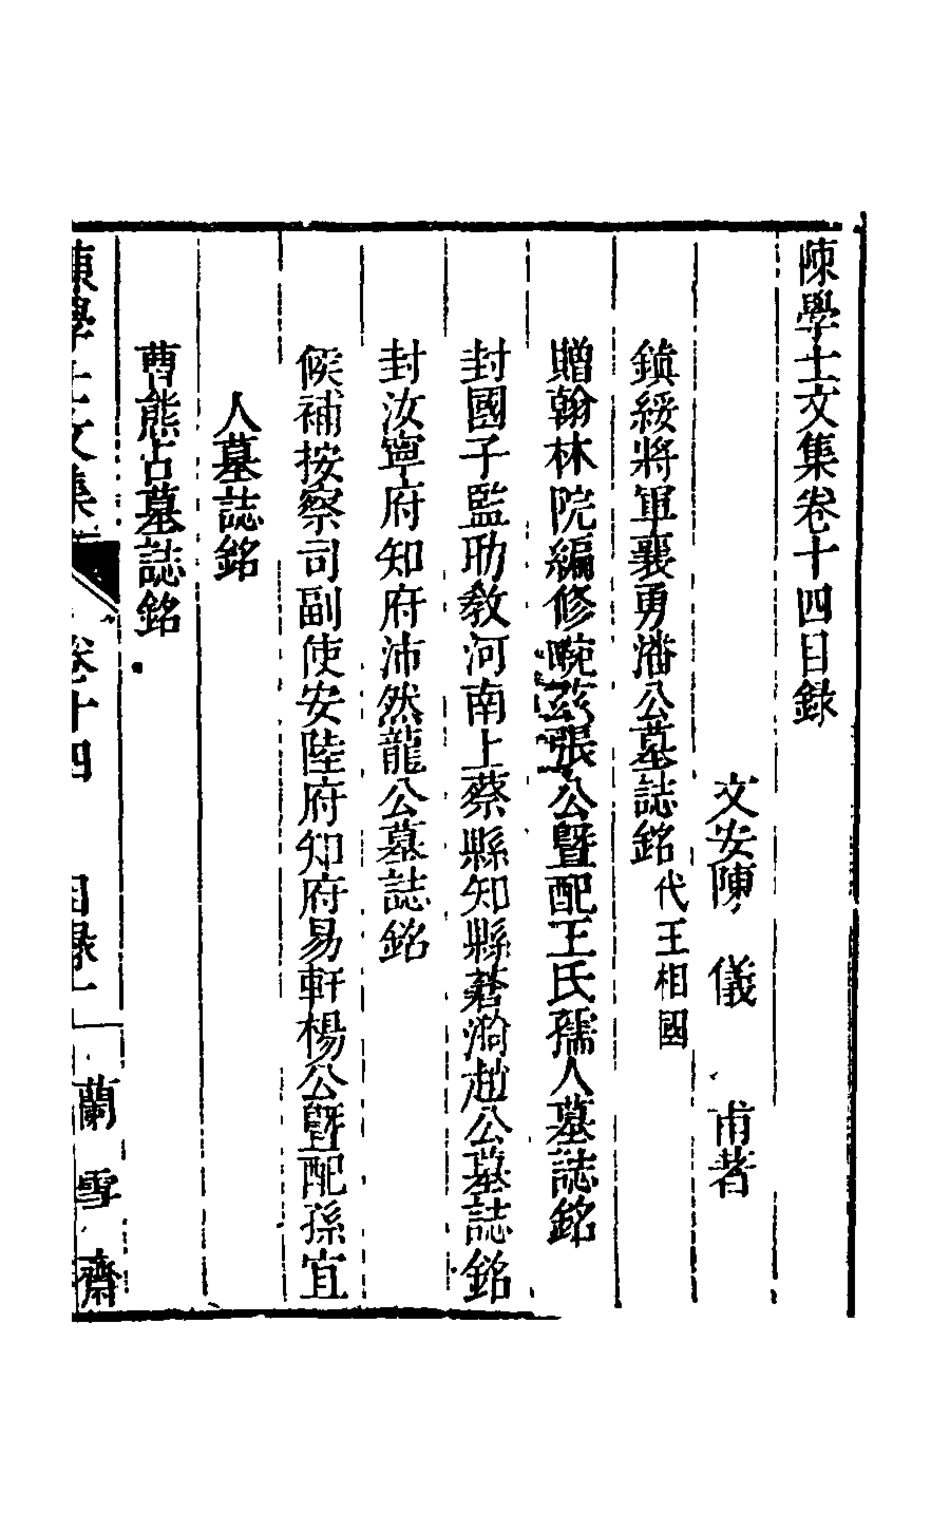 陳學士文集卷十四目録
文安陳 儀 甫著
鎮綏將軍襄勇潘公墓誌銘代王相國
贈翰林院編修畹茲張公曁配王氏孺人墓誌銘
封國子監助教河南上蔡縣知縣蒼漪趙公墓誌銘
封汝寧府知府沛然龍公墓誌銘
候補按察司副使安陸府知府易軒楊公曁配孫宜
人墓誌銘
曹熊占墓誌銘
陳學士文集 卷十四 目録一 蘭雪齋